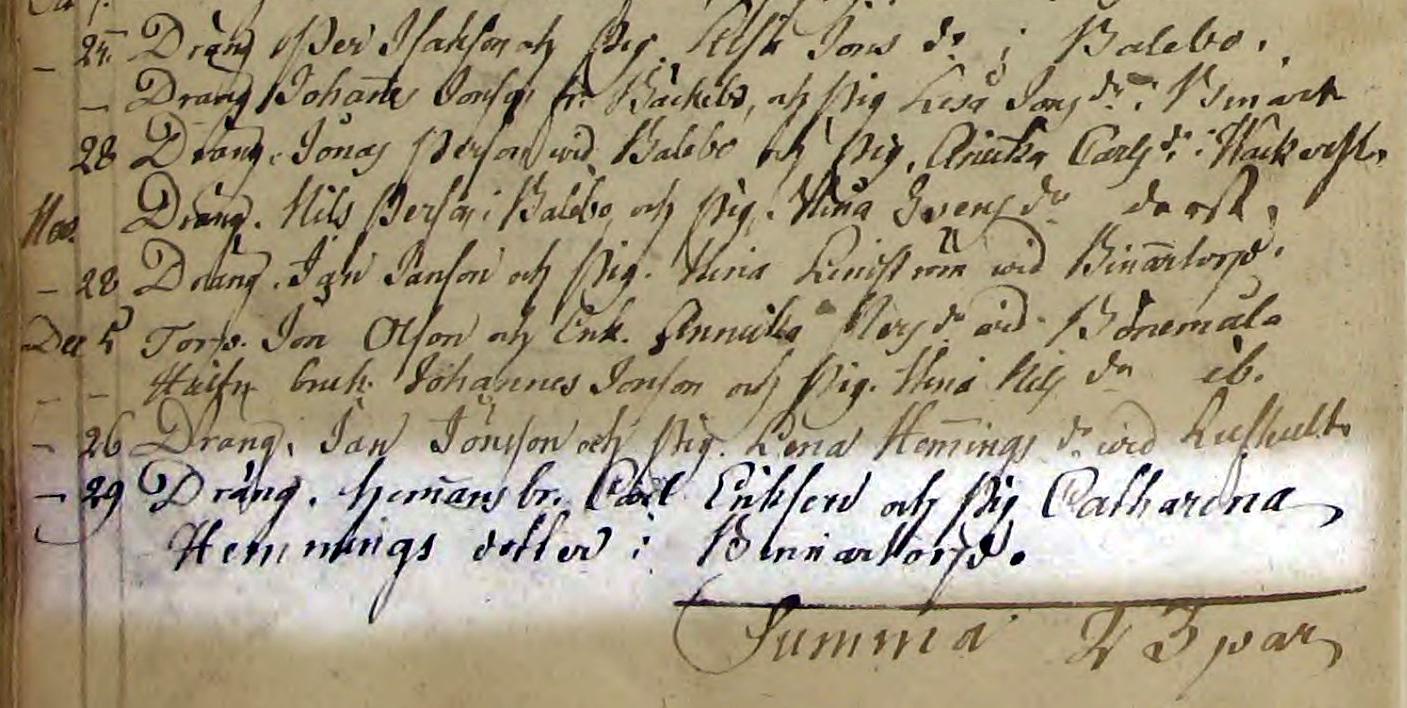 25 Dräng Per Isakson och Pig. Lisa Jons dr i Balebo.
— Dräng Johanes Jonson fr. Bäckebo, och Pig Lisa Jons dr i
28 Dräng. Jonas Person wid Balebo och Pig. Annika Carls dr i
Nov. Dräng. Nils Person i Balebo, och Pig. Stina Svens dr derst.
— 28 Dräng. Jan Janson och Pig. Stina Lindström wid Binnartorp.
Dec 5 Torp. Jon Olson och Enk. Annika Pers dr wid Bönemåla
— — bruk. Johannes Jonson och Pig. Stina Nils dr ib.
— 26 Dräng. Jan Jönsson och Pig. Lena Hemings dr wid
— 29 Dräng. hemans br. Carl Erikson och Pig Catharina
Hemmings dotter i Binnartorp.
Summa 23 par